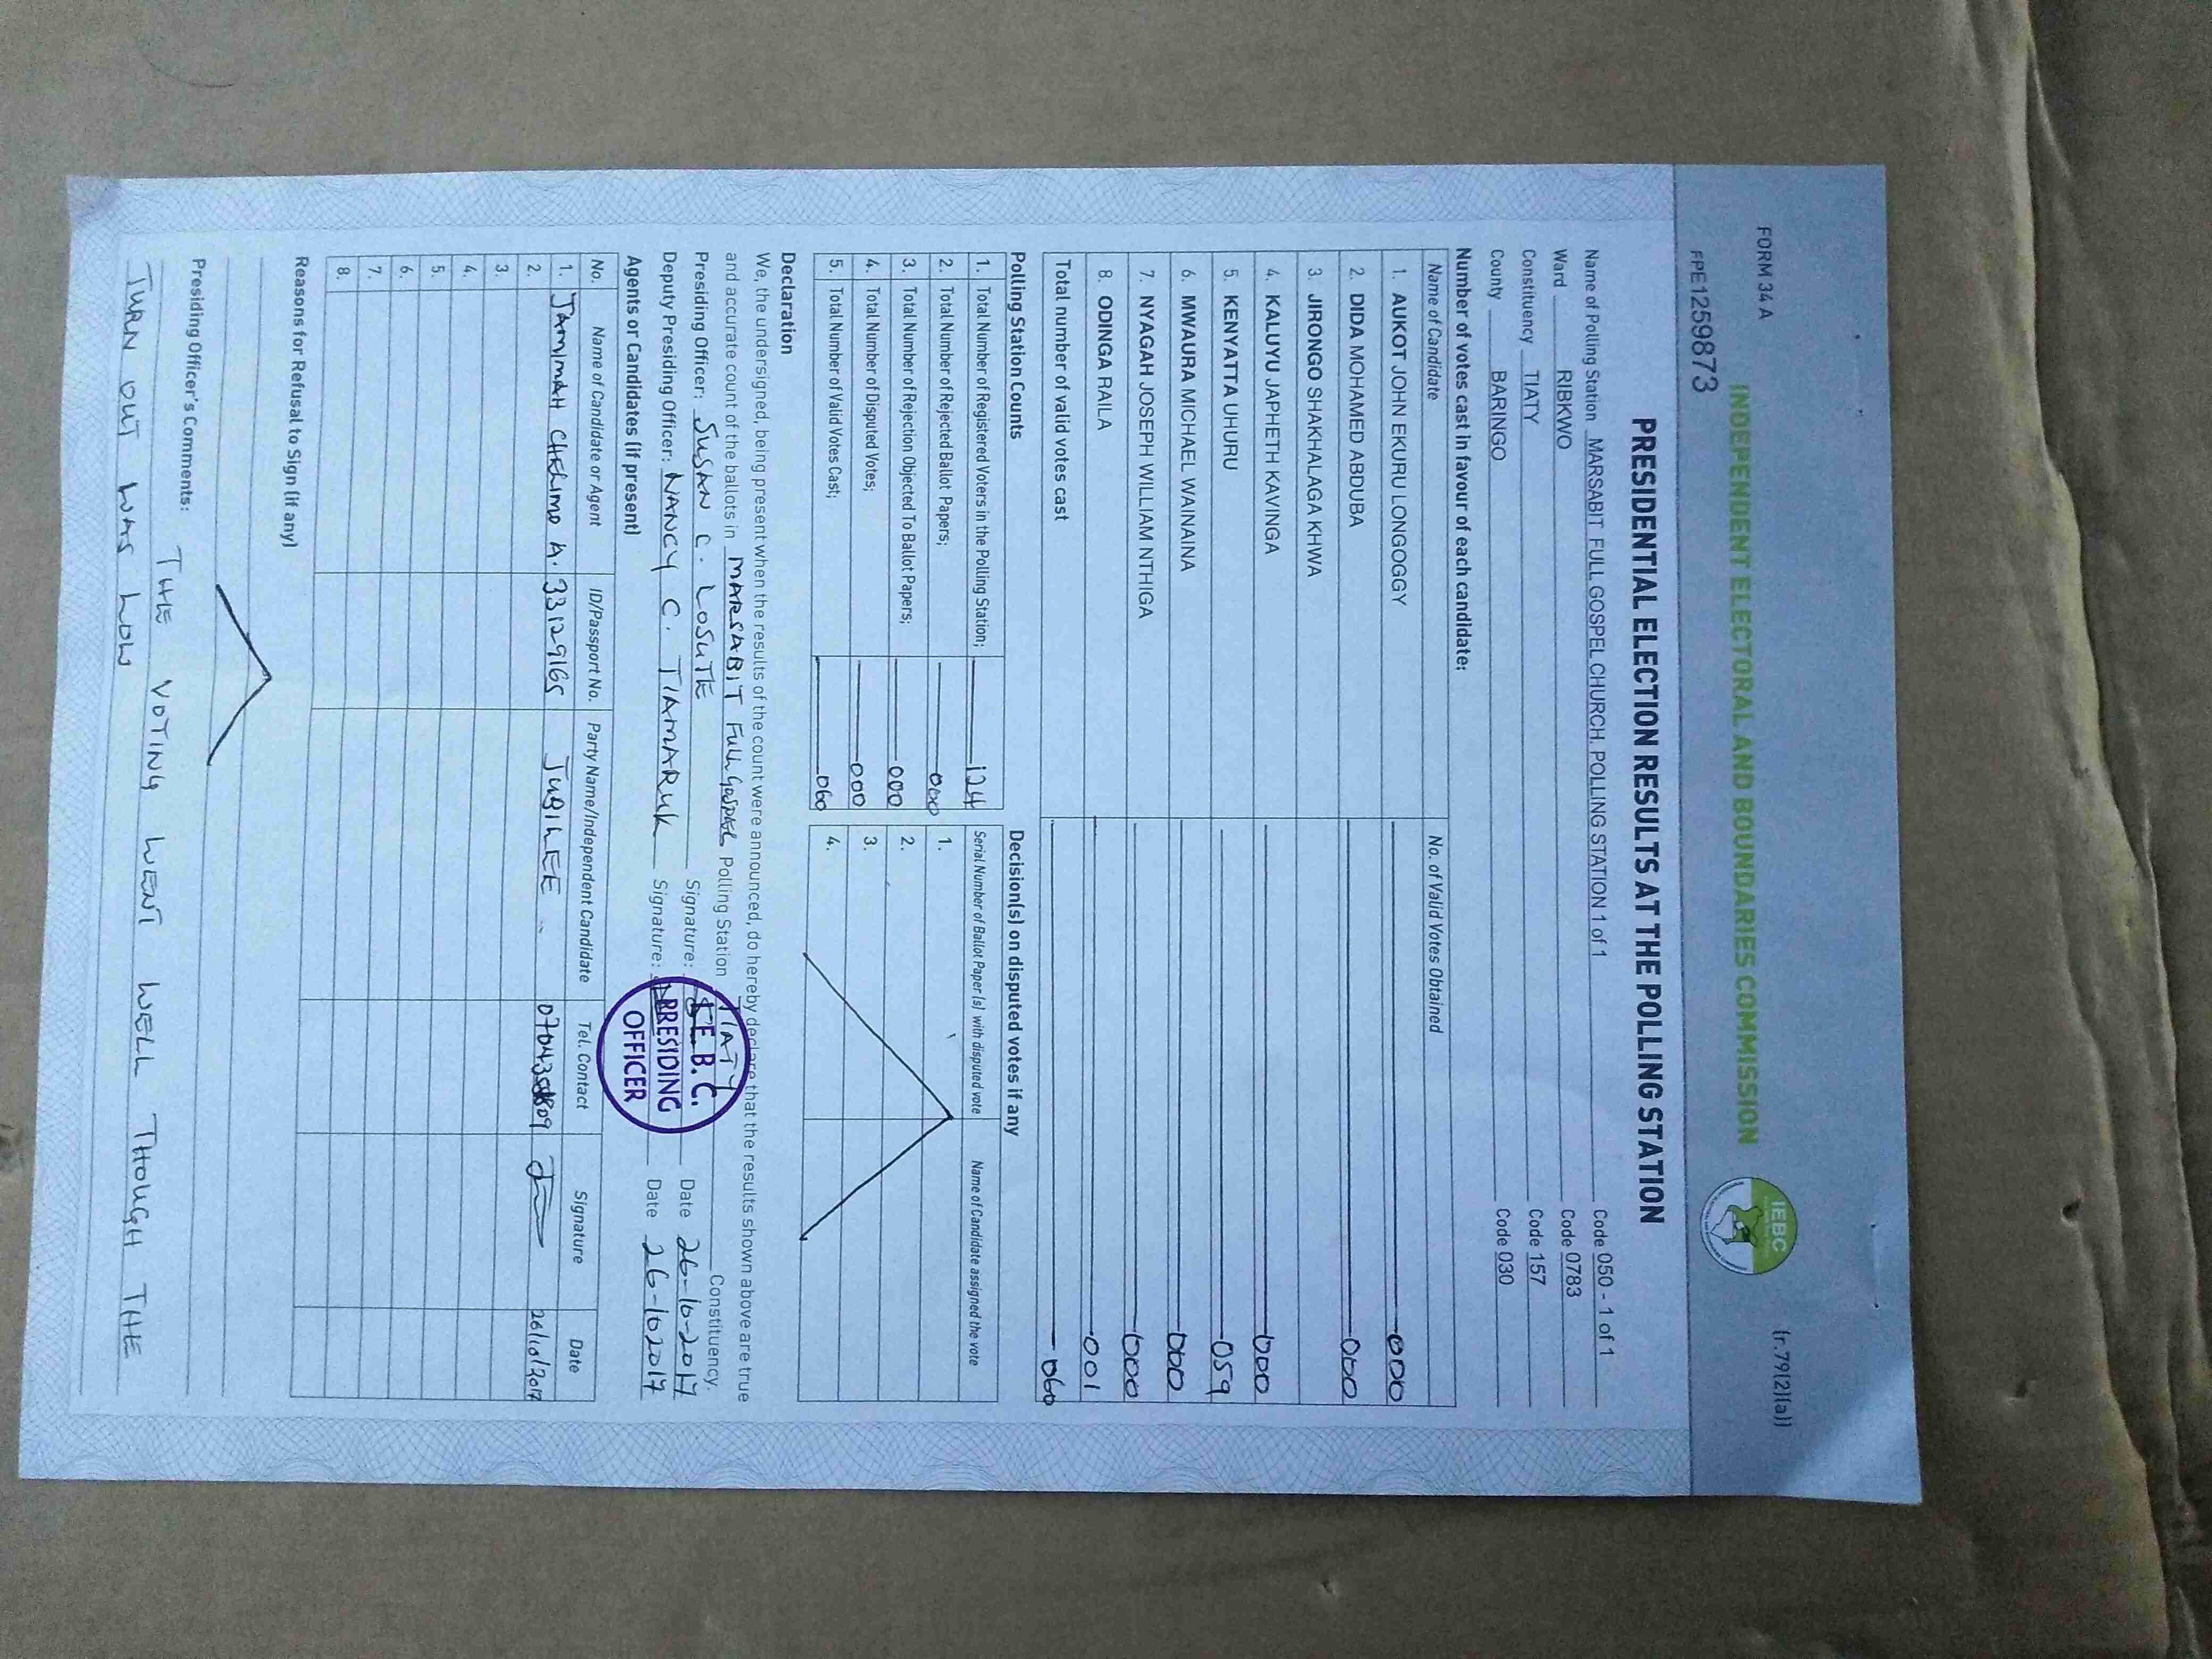 FORM 34 A
(r.79(2)(a))
INDEPENDENT ELECTORAL AND BOUNDARIES COMMISSION
IEBC
FPE1259873
PRESIDENTIAL ELECTION RESULTS AT THE POLLING STATION
Name of Polling Station MARSABIT FULL GOSPEL CHURCH. POLLING STATION 1 of 1 Code 050 - 1 of 1
Ward RIBKWO Code 0783
Constituency TIATY Code 157
County BARINGO Code 030
Number of votes cast in favour of each candidate:
Name of Candidate No. of Valid Votes Obtained
1. AUKOT JOHN EKURU LONGOGGY 000
2. DIDA MOHAMED ABDUBA 000
3. JIRONGO SHAKHALAGA KHWA
4. KALUYU JAPHETH KAVINGA 000
5. KENYATTA UHURU 059
6. MWAURA MICHAEL WAINAINA 000
7. NYAGAH JOSEPH WILLIAM NTHIGA 000
8. ODINGA RAILA 001
Total number of valid votes cast 060
Polling Station Counts
1. Total Number of Registered Voters in the Polling Station; 124
2. Total Number of Rejected Ballot Papers; 000
3. Total Number of Rejection Objected To Ballot Papers; 000
4. Total Number of Disputed Votes; 000
5. Total Number of Valid Votes Cast; 060
Decision(s) on disputed votes if any
Serial Number of Ballot Paper (s) with disputed vote Name of Candidate assigned the vote
1.
2.
3.
4.
Declaration
We, the undersigned, being present when the results of the count were announced, do hereby declare that the results shown above are true
and accurate count of the ballots in MARSABIT FULL GOSPEL Polling Station TIATY Constituency.
Presiding Officer: SUSAN C. LOSUTE Signature: Date 26-10-2017
Deputy Presiding Officer: NANCY C. TIAMARUK Signature: Date 26-10 2017
I.E.B.C.
PRESIDING
OFFICER
Agents or Candidates (if present)
No. Name of Candidate or Agent ID/Passport No. Party Name/Independent Candidate Tel. Contact Signature Date
1. JAMIMAH CHELIMO A. 33129165 JUBILEE 26/10/2017
2.
3.
4.
5.
6.
7.
8.
Reasons for Refusal to Sign (if any)
Presiding Officer's Comments: THE VOTING WENT WELL THOUGH THE
TURN OUT WAS LOW